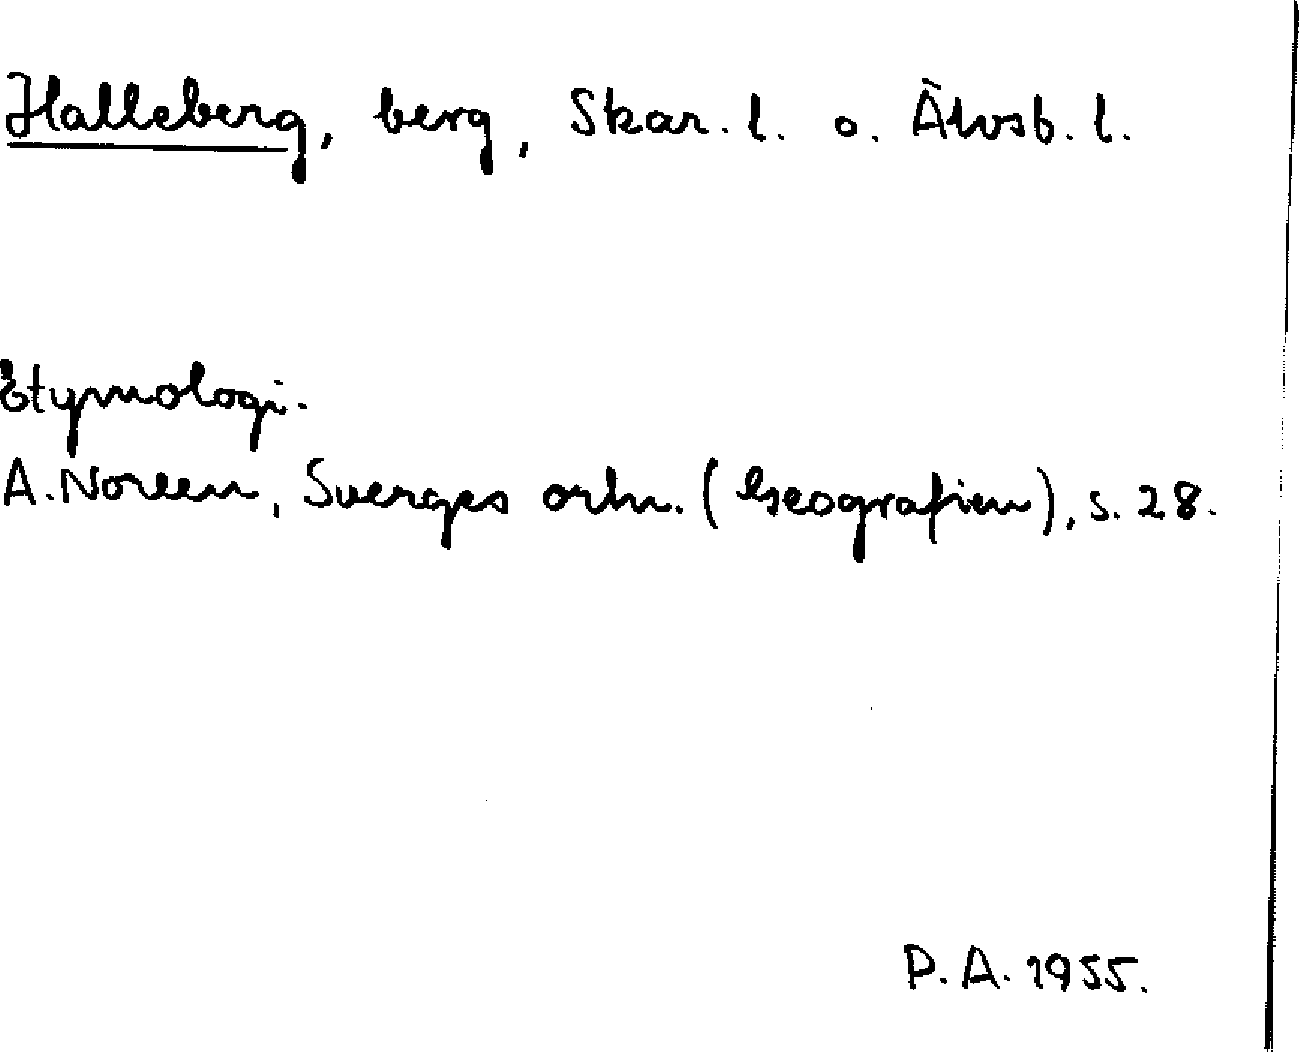 Halleberg, berg, Skar. l. o. Älvsb. l.
Etymologi.
A. Noreen, Sverges ortn. (Geografien), s. 28.
P. A. 1955.